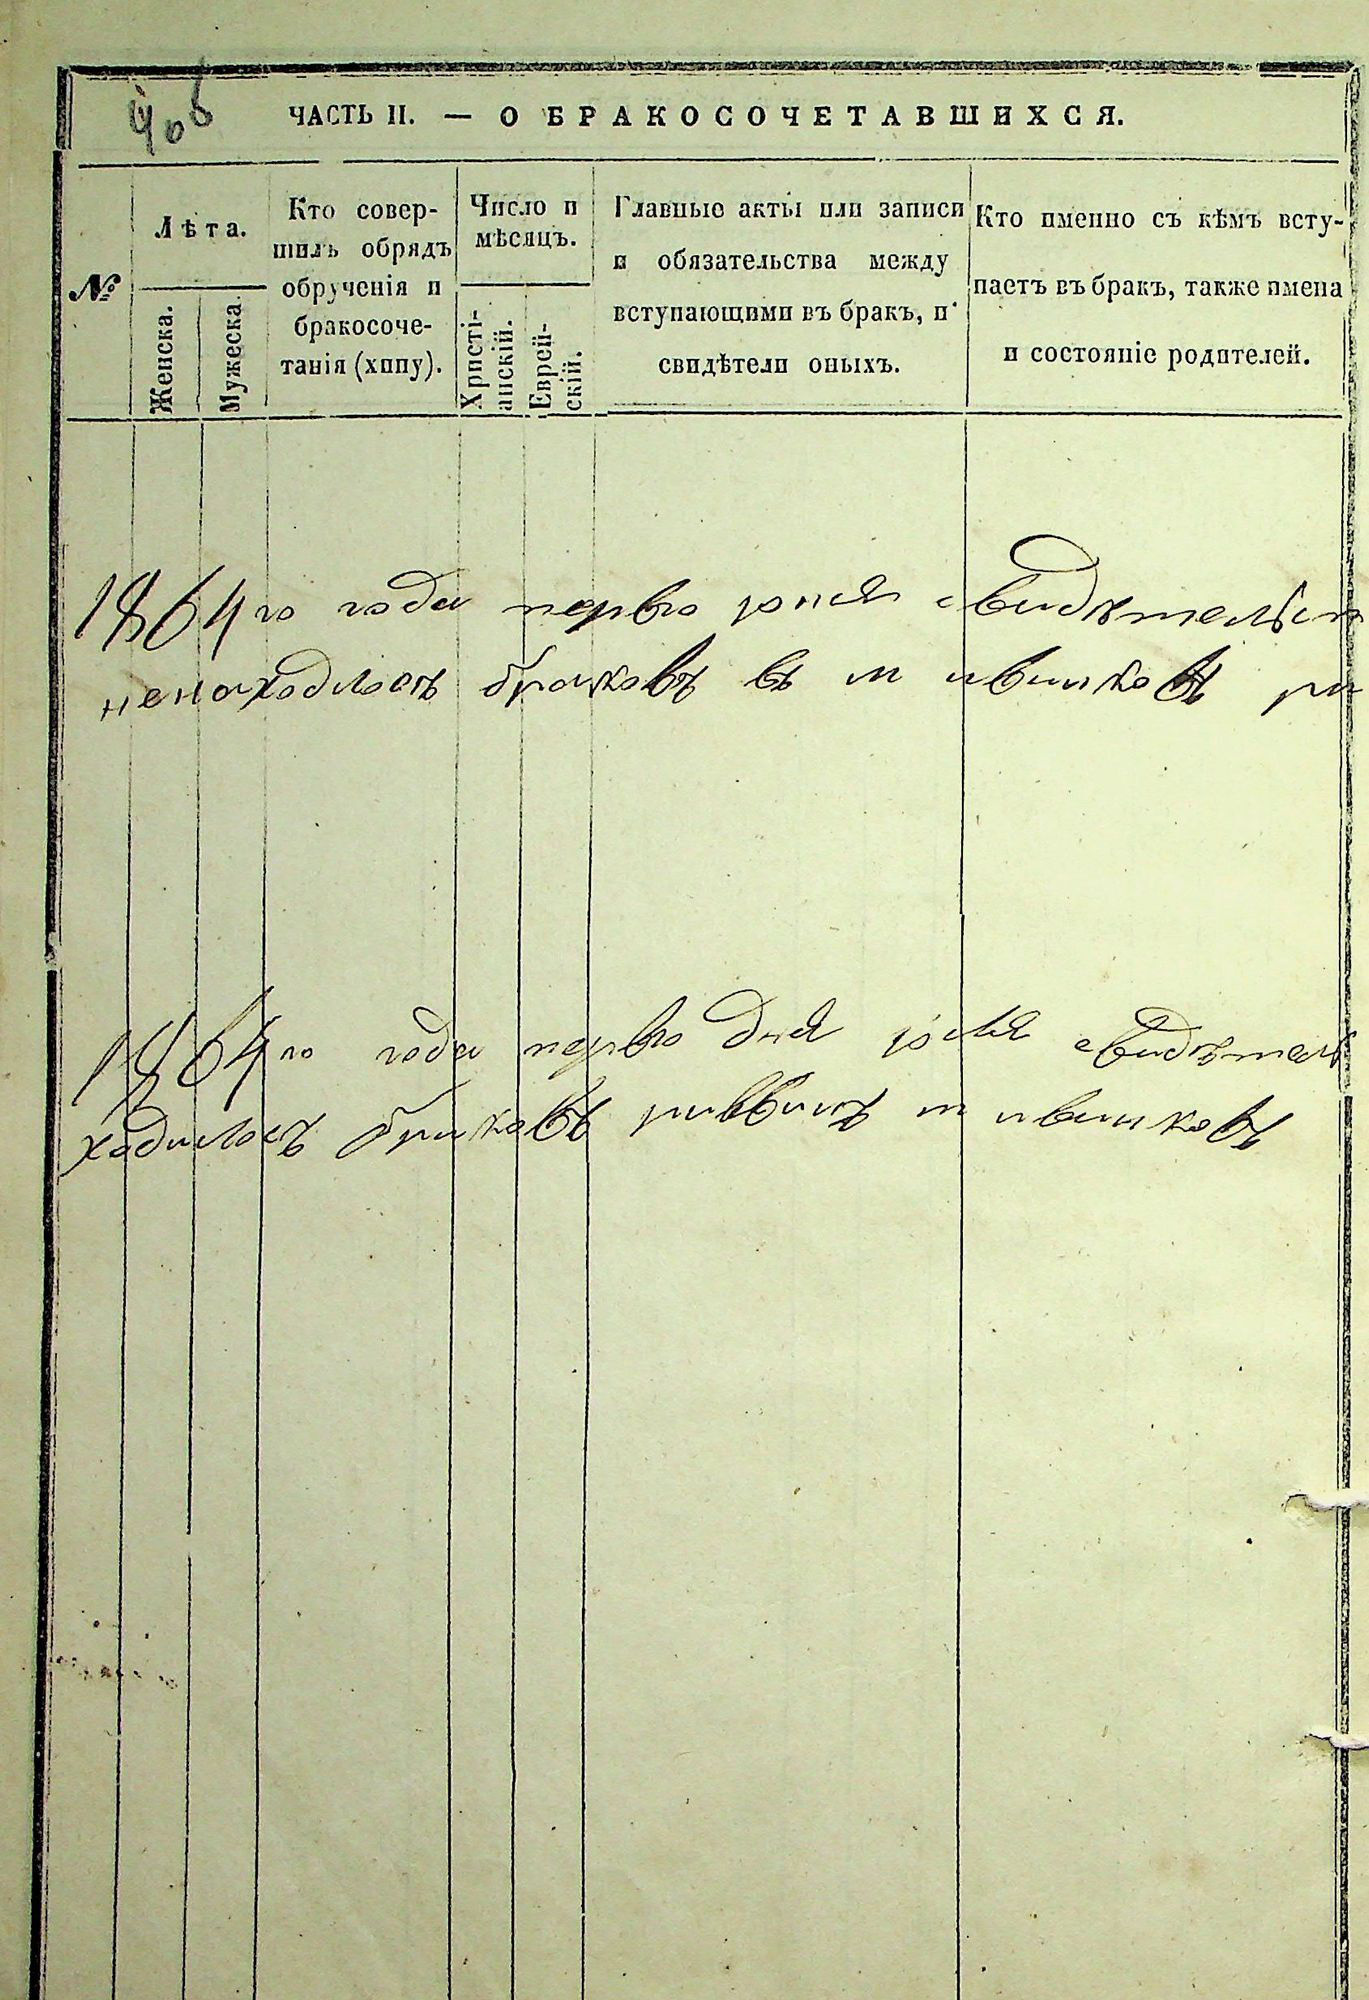 ЧАСТЬ II. — О БРАКОСОЧЕТАВШИХСЯ.
№
Лѣта.
Женска.
Мужеска.
Кто совер-
шилъ обрядъ
обрученія и
бракосоче-
танія (хипу).
Число и
мѣсяцъ.
Христі-
анскій.
Еврей-
скій.
Главные акты или записи
и обязательства между
вступающими въ бракъ, и
свидѣтели оныхъ.
Кто именно съ кѣмъ всту-
паетъ въ бракъ, также имена
и состояніе родителей.
1864го года перваго юня свидѣтельст
ненаходлось браковъ въ
1864го года перваго дня юля свидѣтель
ходилось браковъ раввинъ